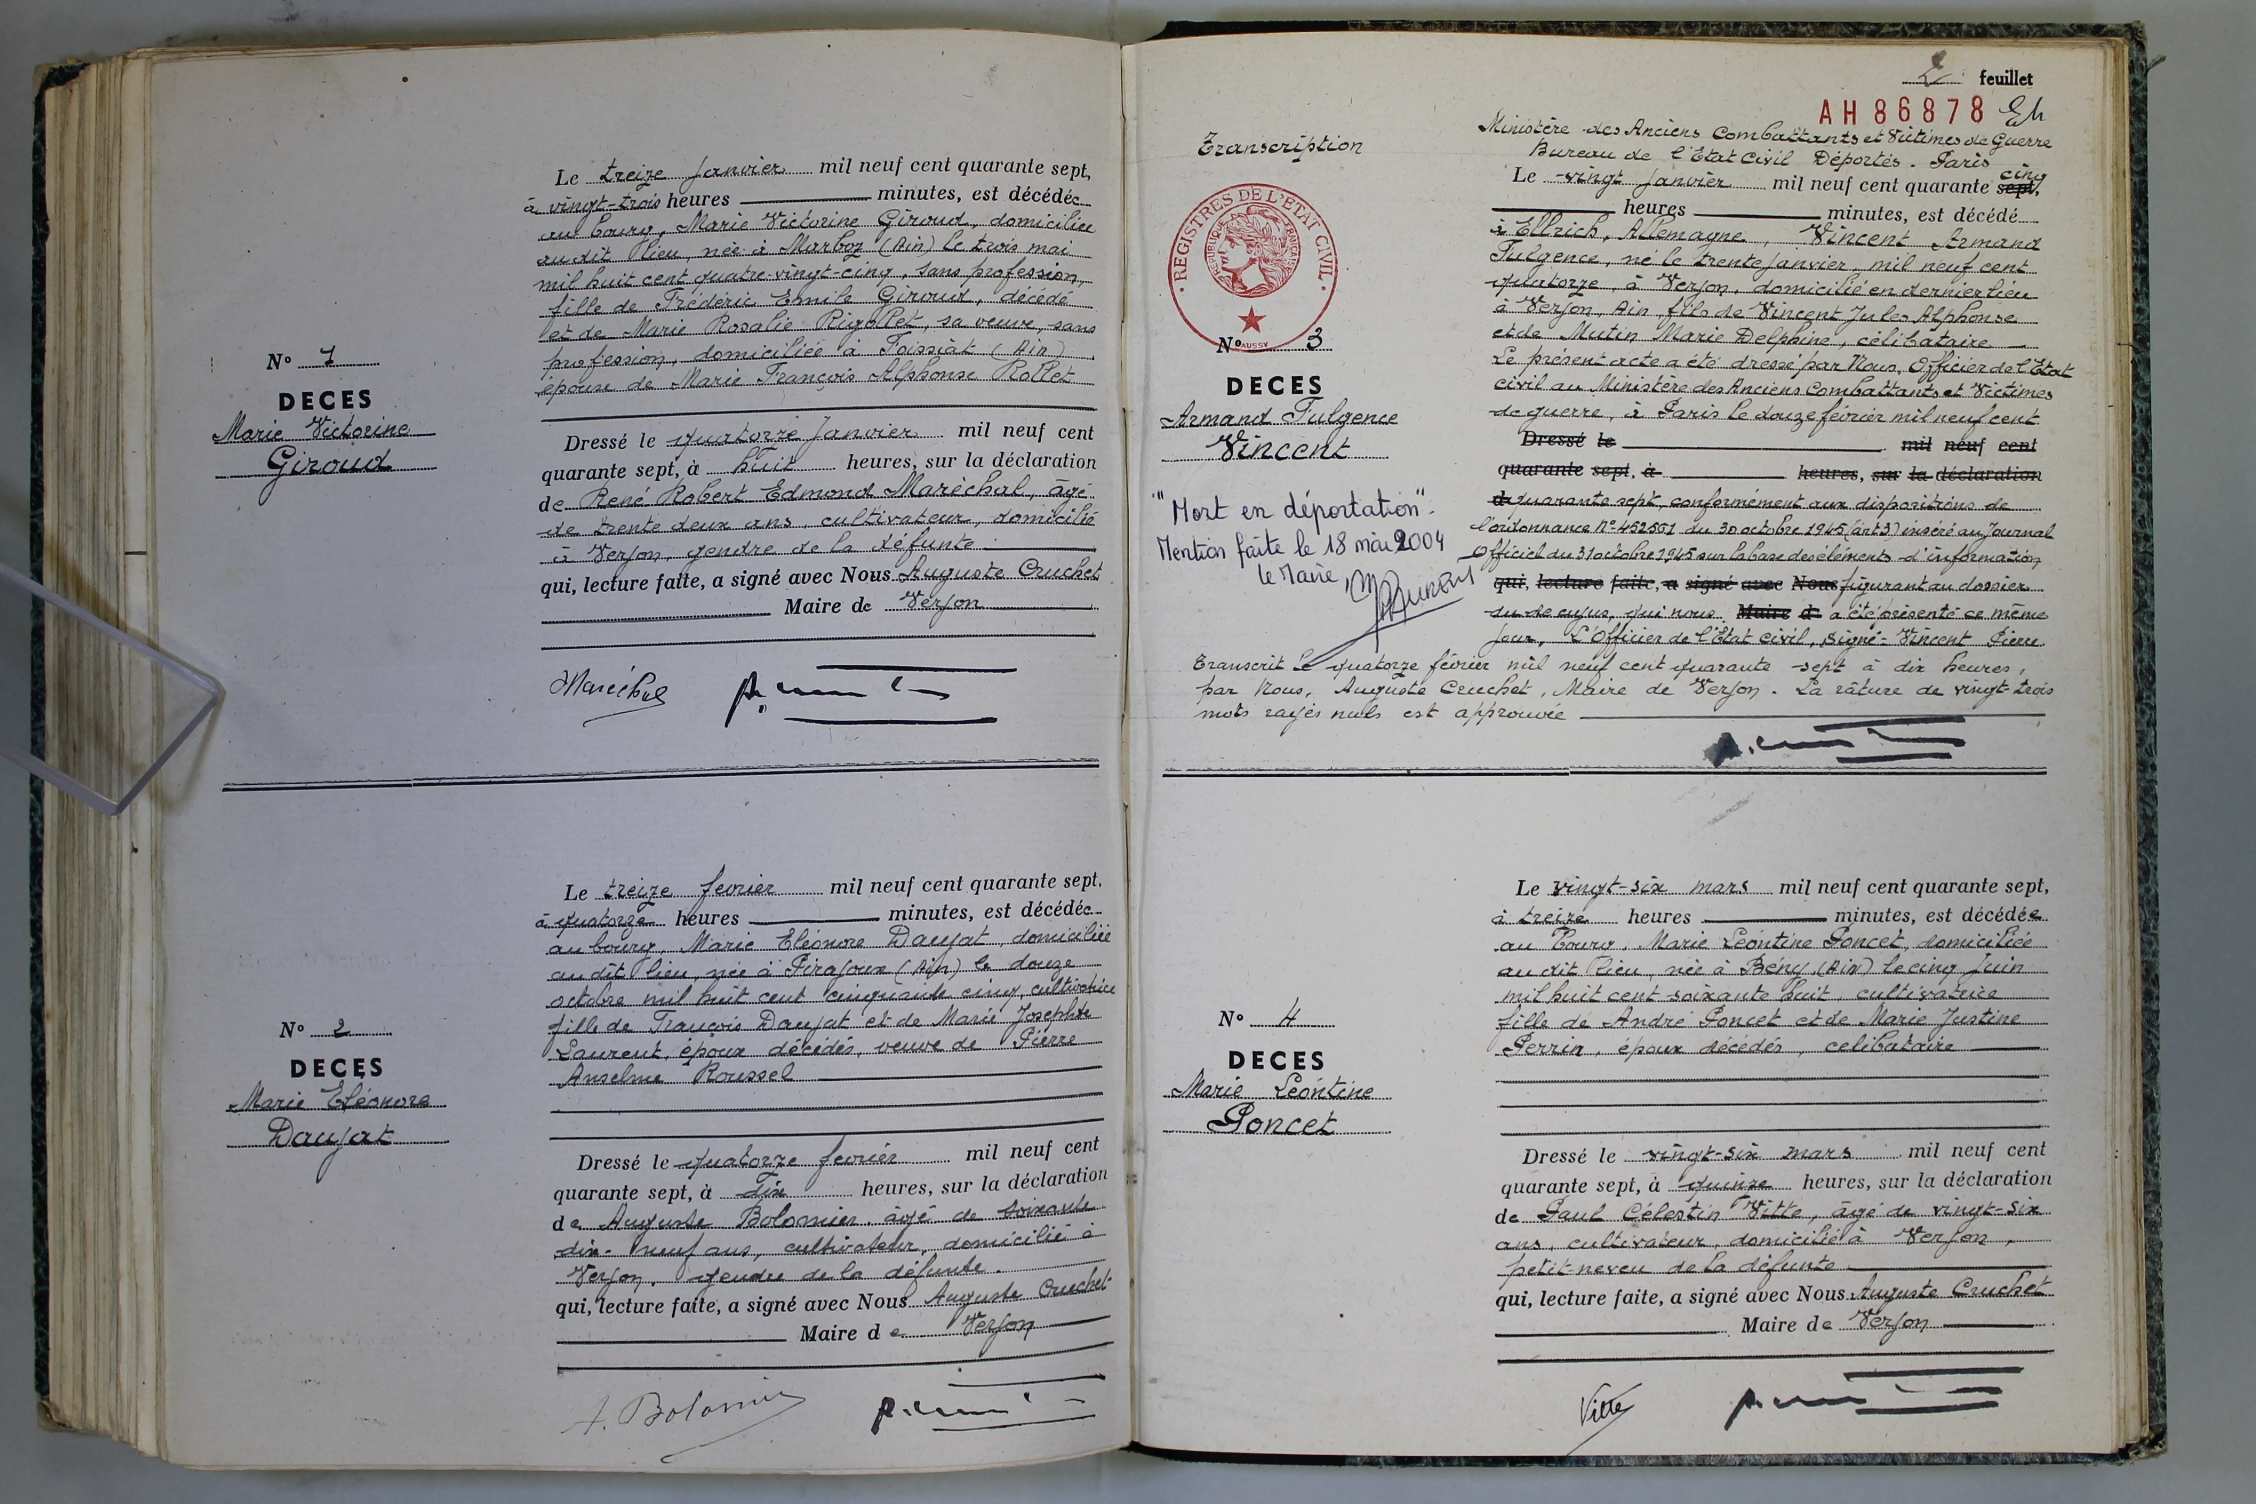 Le treize janvier mil neuf cent quarante sept,
à vingt-trois heures minutes, est décédée
au bourg, Marie Victorine Giroud, domiciliée
au dit lieu, née à Marboz (Ain) le trois mai
mil huit cent quatre-vingt-cinq, sans profession,
fille de Frédéric Emile Giroud, décédé
et de Marie Rosalie Rigollet, sa veuve, sans
profession, domiciliée à Foissiat (Ain)
épouse de Marie François Alphonse Rollet
N° 1
DECES
Marie Victorine
Giroud
Dressé le quatorze janvier mil neuf cent
quarante sept, à huit heures, sur la déclaration
de René Robert Edmond Maréchal, âgé
de trente deux ans, cultivateur, domicilié
à Verjon, gendre de la défunte
qui, lecture faite, a signé avec Nous Auguste Cruchet
Maire de Verjon
Maréchal
Le treize fevrier mil neuf cent quarante sept,
à quatorze heures minutes, est décédée
au bourg, Marie Eléonore Daujat, domiciliée
au dit lieu, née à Pirajoux (Ain) le douze
octobre mil huit cent cinquante cinq, cultivatrice
fille de François Daujat et de Marie Josephte
Laurent, époux décédés, veuve de Pierre
Anselme Roussel
N° 2
DECES
Marie Eléonore
Daujat
Dressé le quatorze fevrier mil neuf cent
quarante sept, à dix heures, sur la déclaration
de Auguste Bolomier, âgé de soixante
dix-neuf ans, cultivateur, domicilié à
Verjon, gendre de la défunte.
qui, lecture faite, a signé avec Nous Auguste Cruchet
Maire de Verjon
A. Bolomier
2 feuillet
AH86878
Transcription
Ministère des Anciens Combattants et Victimes de Guerre
Bureau de l'Etat Civil Déportés. Paris
Le vingt janvier mil neuf cent quarante sept, cinq
heures minutes, est décédé
à Ellrich, Allemagne, Vincent Armand
Fulgence, né le trente janvier mil neuf cent
quatorze, à Verjon, domicilié en dernier lieu
à Verjon, Ain, fils de Vincent Jules Alphonse
et de Mutin Marie Delphine, célibataire
Le présent acte a été dressé par Nous, Officier de l'Etat
civil au Ministère des Anciens Combattants et Victimes
de guerre, à Paris le douze février mil neuf cent
Dressé le mil neuf cent
quarante sept, à heures, sur la déclaration
de quarante sept, conformément aux dispositions de
l'ordonnance N° 452561 du 30 octobre 1945 (art 3) inséré au Journal
Officiel du 31 octobre 1945 sur la base des éléments d'information
qui, lecture faite, a signé avec Nous figurant au dossier
du de cujus, qui nous Maire d a été présenté ce même
jour, L'Officier de l'Etat civil, signé = Vincent Pierre
Transcrit le quatorze février mil neuf cent quarante sept à dix heures,
par Nous, Auguste Cruchet, Maire de Verjon. La râture de vingt-trois
mots rayés nuls est approuvée
REGISTRES DE L'ETAT CIVIL
REPUBLIQUE FRANÇAISE
AUSSY
N° 3
DECES
Armand Fulgence
Vincent
"Mort en déportation".
Mention faite le 18 mai 2004
le Maire
Le vingt-six mars mil neuf cent quarante sept,
à treize heures minutes, est décédée
au bourg, Marie Leóntine Poncet, domiciliée
au dit lieu, née à Bény (Ain) le cinq Juin
mil huit cent soixante huit, cultivatrice
fille de André Poncet et de Marie Justine
Perrin, époux décédés, celibataire
N° 4
DECES
Marie Leóntine
Poncet
Dressé le vingt-six mars mil neuf cent
quarante sept, à quinze heures, sur la déclaration
de Paul Célestin Vitte, âgé de vingt-six
ans, cultivateur, domicilié à Verjon,
petit-neveu de la défunte
qui, lecture faite, a signé avec Nous Auguste Cruchet
Maire de Verjon
Vitte